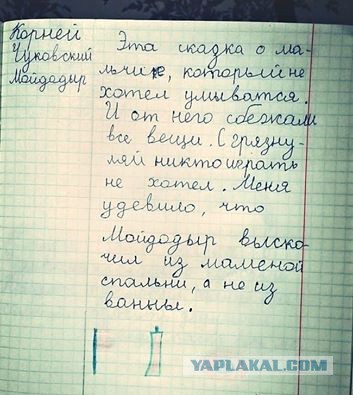 Корней
Чуковский
Мойдадыр
Эта сказка о ма-
льчике, который не
хотел умыватся.
И от него сбежали
все вещи. С грязну-
лей никто играть
не хотел. Меня
удевило, что
Мойдодыр выско-
чил из маменой
спальни, а не из
ванны.
YAPLAKAL.COM